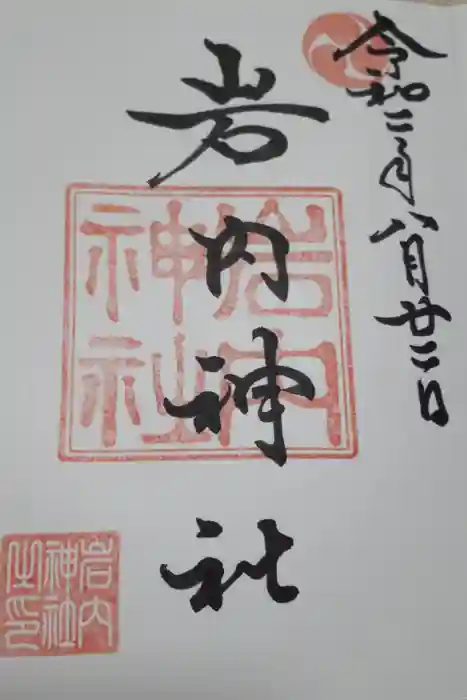 令和二年八月廿二日
岩内神社
岩内神社
岩内神社之印